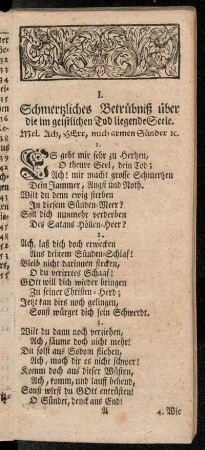 I.
Schmertzliches Betrübniß über
die im geistlichen Tod liegende Seele.
Mel. Ach, HErr, mich armen Sünder ꝛc.
1.
ES geht mir sehr zu Hertzen,
O theure Seel, dein Tod;
Ach! mir macht grosse Schmertzen
Dein Jammer, Angst und Noth.
Wilt du denn ewig sterben
In diesem Sünden-Meer?
Soll dich nunmehr verderben
Des Satans Höllen-Heer?
2.
Ach, laß dich doch erwecken
Aus deinem Sünden-Schlaf!
Bleib nicht darinnen stecken,
O du verirrtes Schaaf!
GOtt will dich wieder bringen
Zu seiner Christen-Herd;
Jetzt kan dirs noch gelingen,
Sonst würget dich sein Schwerdt.
3.
Wilt du dann noch verziehen,
Ach, säume doch nicht mehr!
Du solst aus Sodom fliehen,
Ach, mach dir es nicht schwer!
Komm doch aus dieser Wüsten,
Ach, komm, und lauff behend,
Sonst wirst du GOtt entrüsten!
O Sünder, denck ans End!
A
4. Wie